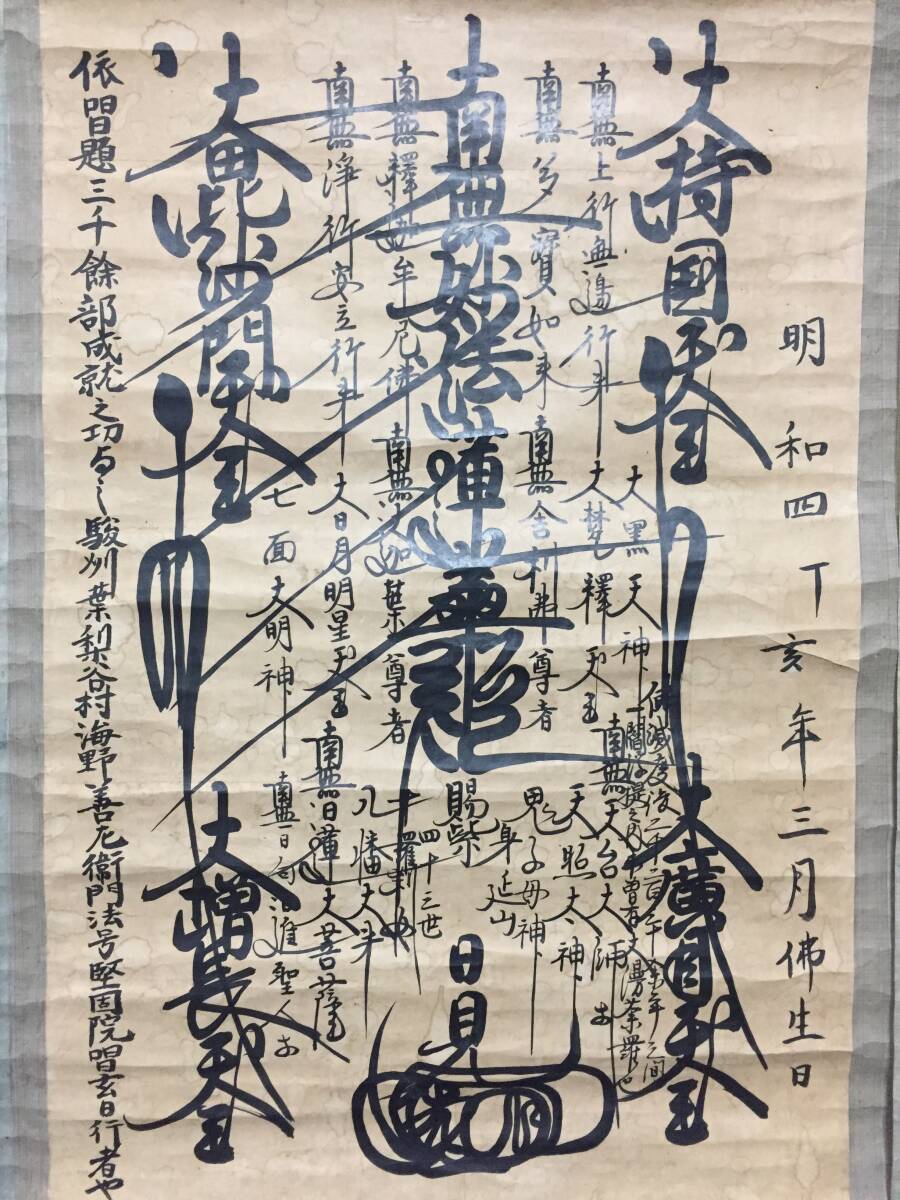 明和四丁亥年三月佛生日
大持國天王
大廣目天王
佛滅度後二千二百二十餘年之間
一閻浮提之内未曾有大漫荼羅也
大黒天神
南無上行無邊行并
大梵釋天王
南無天台大師
南無多寶如来
南無舍利弗尊者
天照太神
鬼子母神
南無妙法蓮華經
賜紫
身延山
四十三世
日見
南無釋迦牟尼佛
南無大迦葉尊者
十羅刹女
八幡大并
南無淨行安立行并
大日月明星天王
南無日蓮大菩薩
七面大明神
南無日向
日進聖人
大毘沙門天王
大増長天王
依唱題三千餘部成就之功与之駿州葉梨谷村海野善左衛門法号堅固院唱玄日行者也